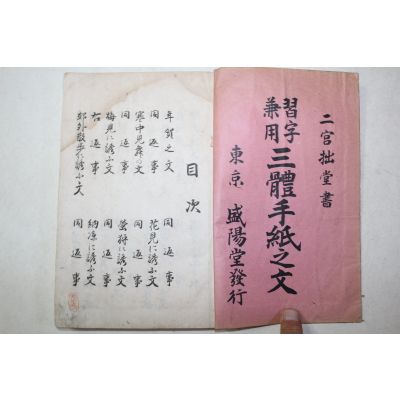 二宮拙堂書
習字兼用
三體手紙之文
東京 盛陽堂發行
目次
年賀之文 同返事
同返事 花見に誘ふ文
寒中見舞の文 同返事
同返事 螢狩に誘ふ文
梅見に誘ふ文 同返事
右返事 納凉に誘ふ文
郊外散歩に誘ふ文 同返事